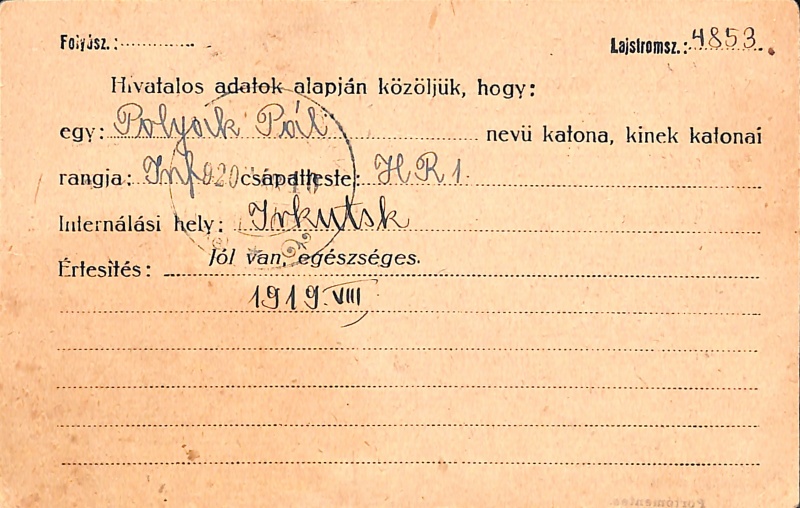 Folyósz.: Lajstromsz.: 4853.
Hivatalos adatok alapján közöljük, hogy:
egy: Polyak Pál nevü katona, kinek katonai
rangja: Inf csapatteste: HR 1.
Internálási hely: Irkutsk
Értesités: Jól van, egészséges.
1919. VIII